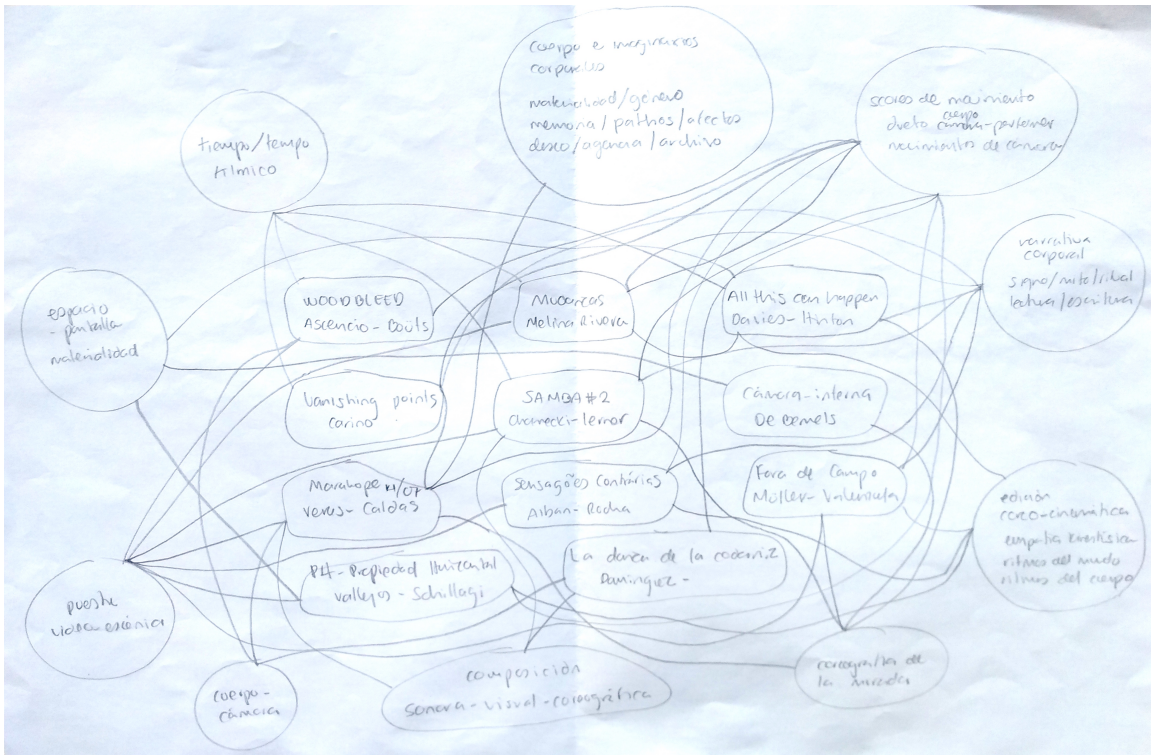 cuerpo e imaginarios
corporales
materialidad/género
memoria/pathos/afectos
deseo/agencia/archivo
scores de movimiento
cuerpo
dueto cámara-partener
movimientos de cámara
tiempo/tempo
fílmico
narrativa
corporal
signo/mito/ritual
lectura/escritura
espacio
-pantalla
materialidad
WOODBLEED
Ascencio-Bouts
Mudanzas
Melina Rivera
All this can happen
Davies-Hinton
Vanishing points
Carino
SAMBA#2
Chamecki-lerner
Cámara-interna
De Bemels
Marahope
Veres-Caldas
Sensações Contrárias
Alban-Rocha
Fora de Campo
Müller-Valenzuela
PH-Propiedad Horizontal
Vallejos-Schillagi
La danza de la codorniz
Dominguez-
edición
coreo-cinemática
empatía kinestésica
ritmos del mundo
ritmos del cuerpo
puesta
video-escénica
cuerpo-
cámara
composición
sonora-visual-coreográfica
coreografía de
la mirada